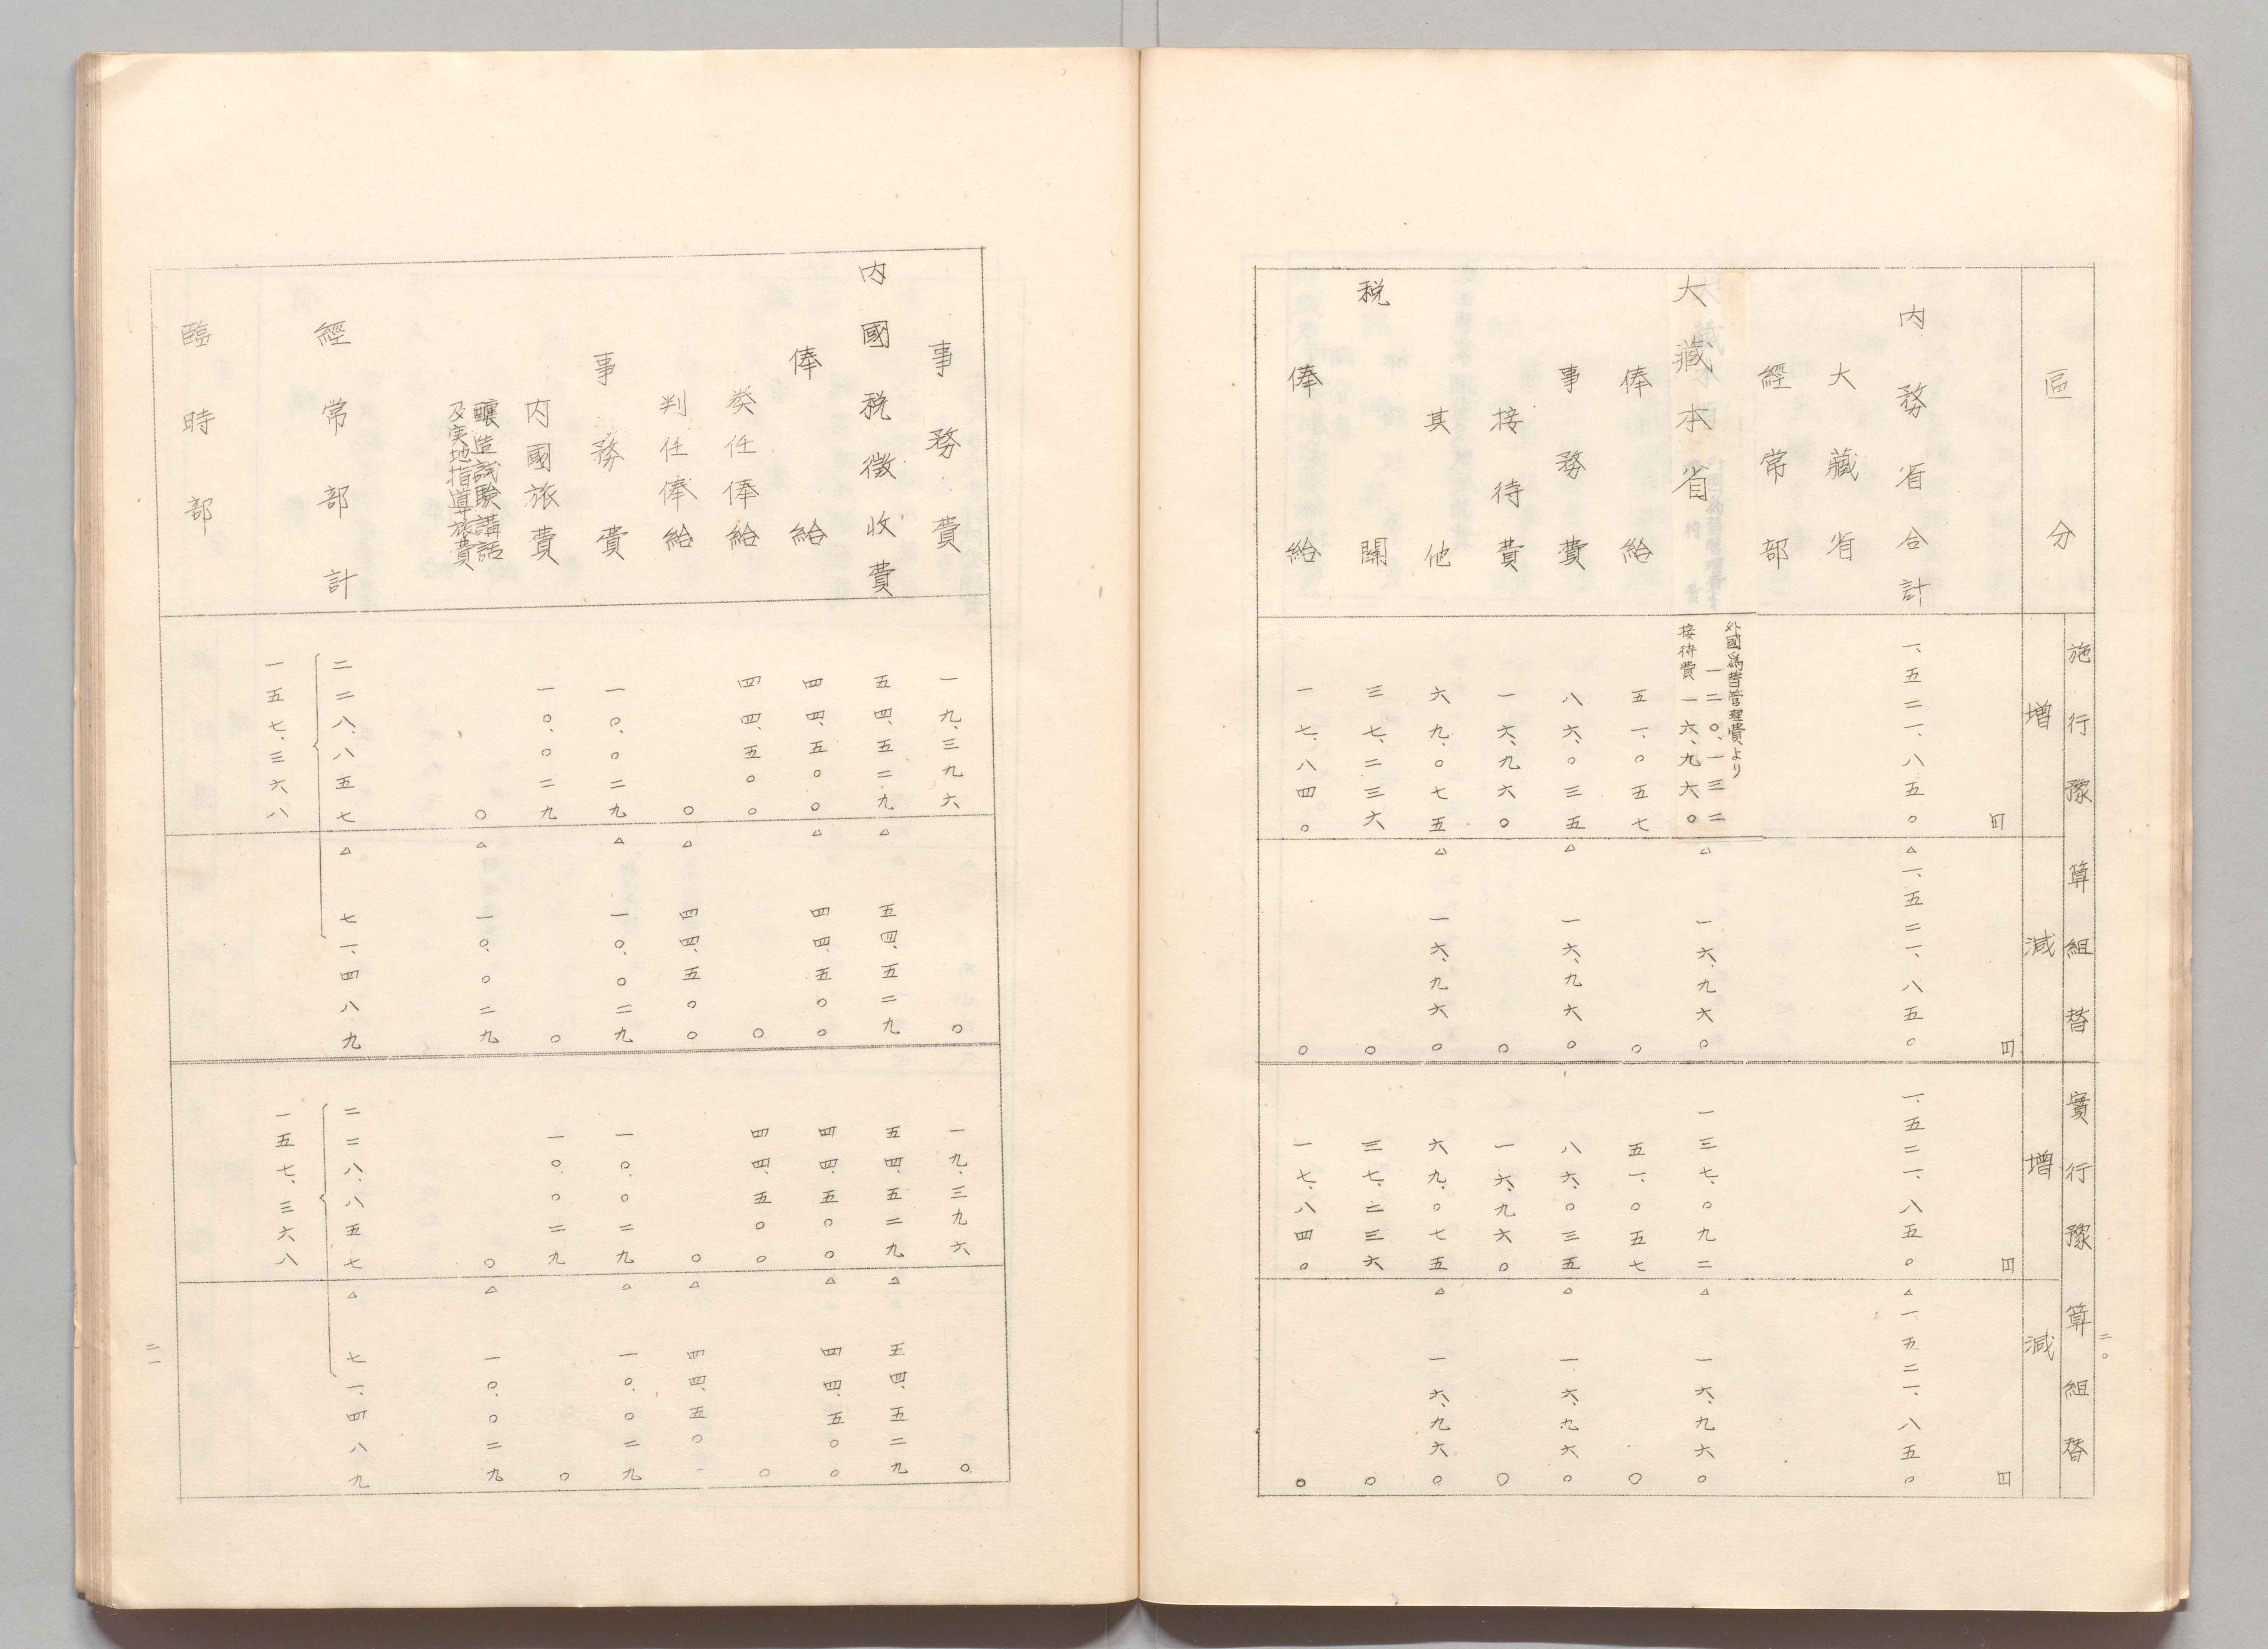 區分
施行豫算組替
增
減
實行豫算組替
增
減
円
円
円
円
內務省合計
一、五二一、八五〇
△一、五二一、八五〇
一、五二一、八五〇
△一五二一、八五〇
大藏省
經常部
大藏本省
外國為替管理費より
一二〇、一三二
接待費一六、九六〇
△一六、九六〇
一三七、〇九二
△一六、九六〇
俸給
五一、〇五七
〇
五一、〇五七
〇
事務費
八六、〇三五
△一六、九六〇
八六、〇三五
△一六、九六〇
接待費
一六、九六〇
〇
一六、九六〇
〇
其他
六九、〇七五
△一六、九六〇
六九、〇七五
△一六、九六〇
稅關
三七、二三六
〇
三七、二三六
〇
俸給
一七、八四〇
〇
一七、八四〇
〇
二〇
事務費
一九、三九六
〇
一九、三九六
〇
內國稅徵收費
五四、五二九
△五四、五二九
五四、五二九
△五四、五二九
俸給
四四、五〇〇
△四四、五〇〇
四四、五〇〇
△四四、五〇〇
奏任俸給
四四、五〇〇
〇
四四、五〇〇
〇
判任俸給
〇
△四四、五〇〇
〇
△四四、五〇
事務費
一〇、〇二九
△一〇、〇二九
一〇、〇二九
△一〇、〇二九
內國旅費
一〇、〇二九
〇
一〇、〇二九
〇
釀造試驗講話
及実地指導旅費
〇
△一〇、〇二九
〇
△一〇、〇二九
經常部計
二二八、八五七
△七一、四八九
二二八、八五七
△七一、四八九
一五七、三六八
一五七、三六八
臨時部
二一